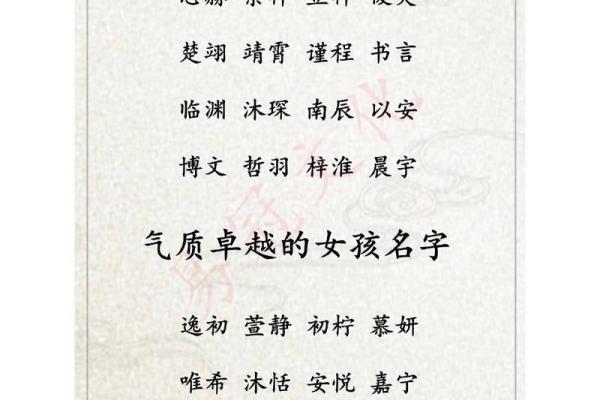 楚翊 靖霄 谨程 书言
临渊 沐琛 南辰 以安
博文 哲羽 梓淮 晨宇
气质卓越的女孩名字
逸初 萱静 初柠 慕妍
唯希 沐恬 安悦 嘉宁